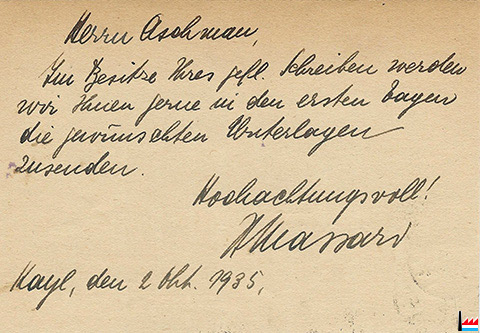 Herrn Aschman,
Im Besitze Ihres gefl. Schreiben werden
wir Ihnen gerne in den ersten Tagen
die gewünschten Unterlagen
zusenden.
Hochachtungsvoll!
Massard
Kayl, den 2 Okt. 1935.